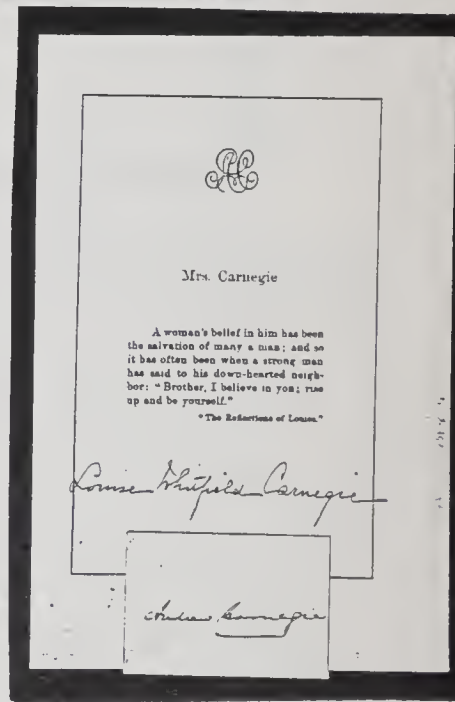 Mrs. Carnegie
A woman's belief in him has been
the salvation of many a man; and so
it has often been when a strong man
has said to his down-hearted neigh-
bor: "Brother, I believe in you; rise
up and be yourself."
"The Reflections of Louise."
Louise Whitfield Carnegie
Andrew Carnegie